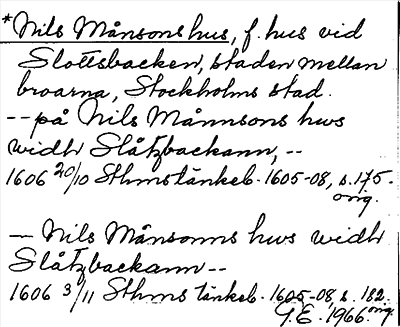 *Nils Månsons hus, f. hus vid
Slottsbacken, staden mellan
broarna, Stockholms stad.
-- på Nils Månnsons hws
widh Slåtzbackann, --
1606 20/10 Sthms tänkeb. 1605-08, s. 175.
orig.
-- Nils Månsonns hws widh
Slåtzbackann --
1606 3/11 Sthms tänkeb. 1605-08, s. 182.
orig.
G.E. 1966.